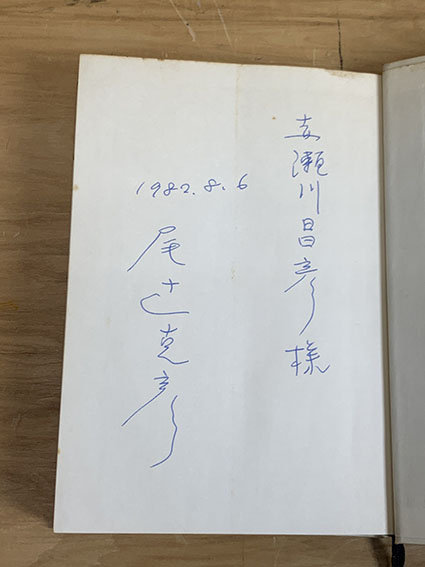 赤瀬川昌彦様
1982.8.6
尾辻克彦